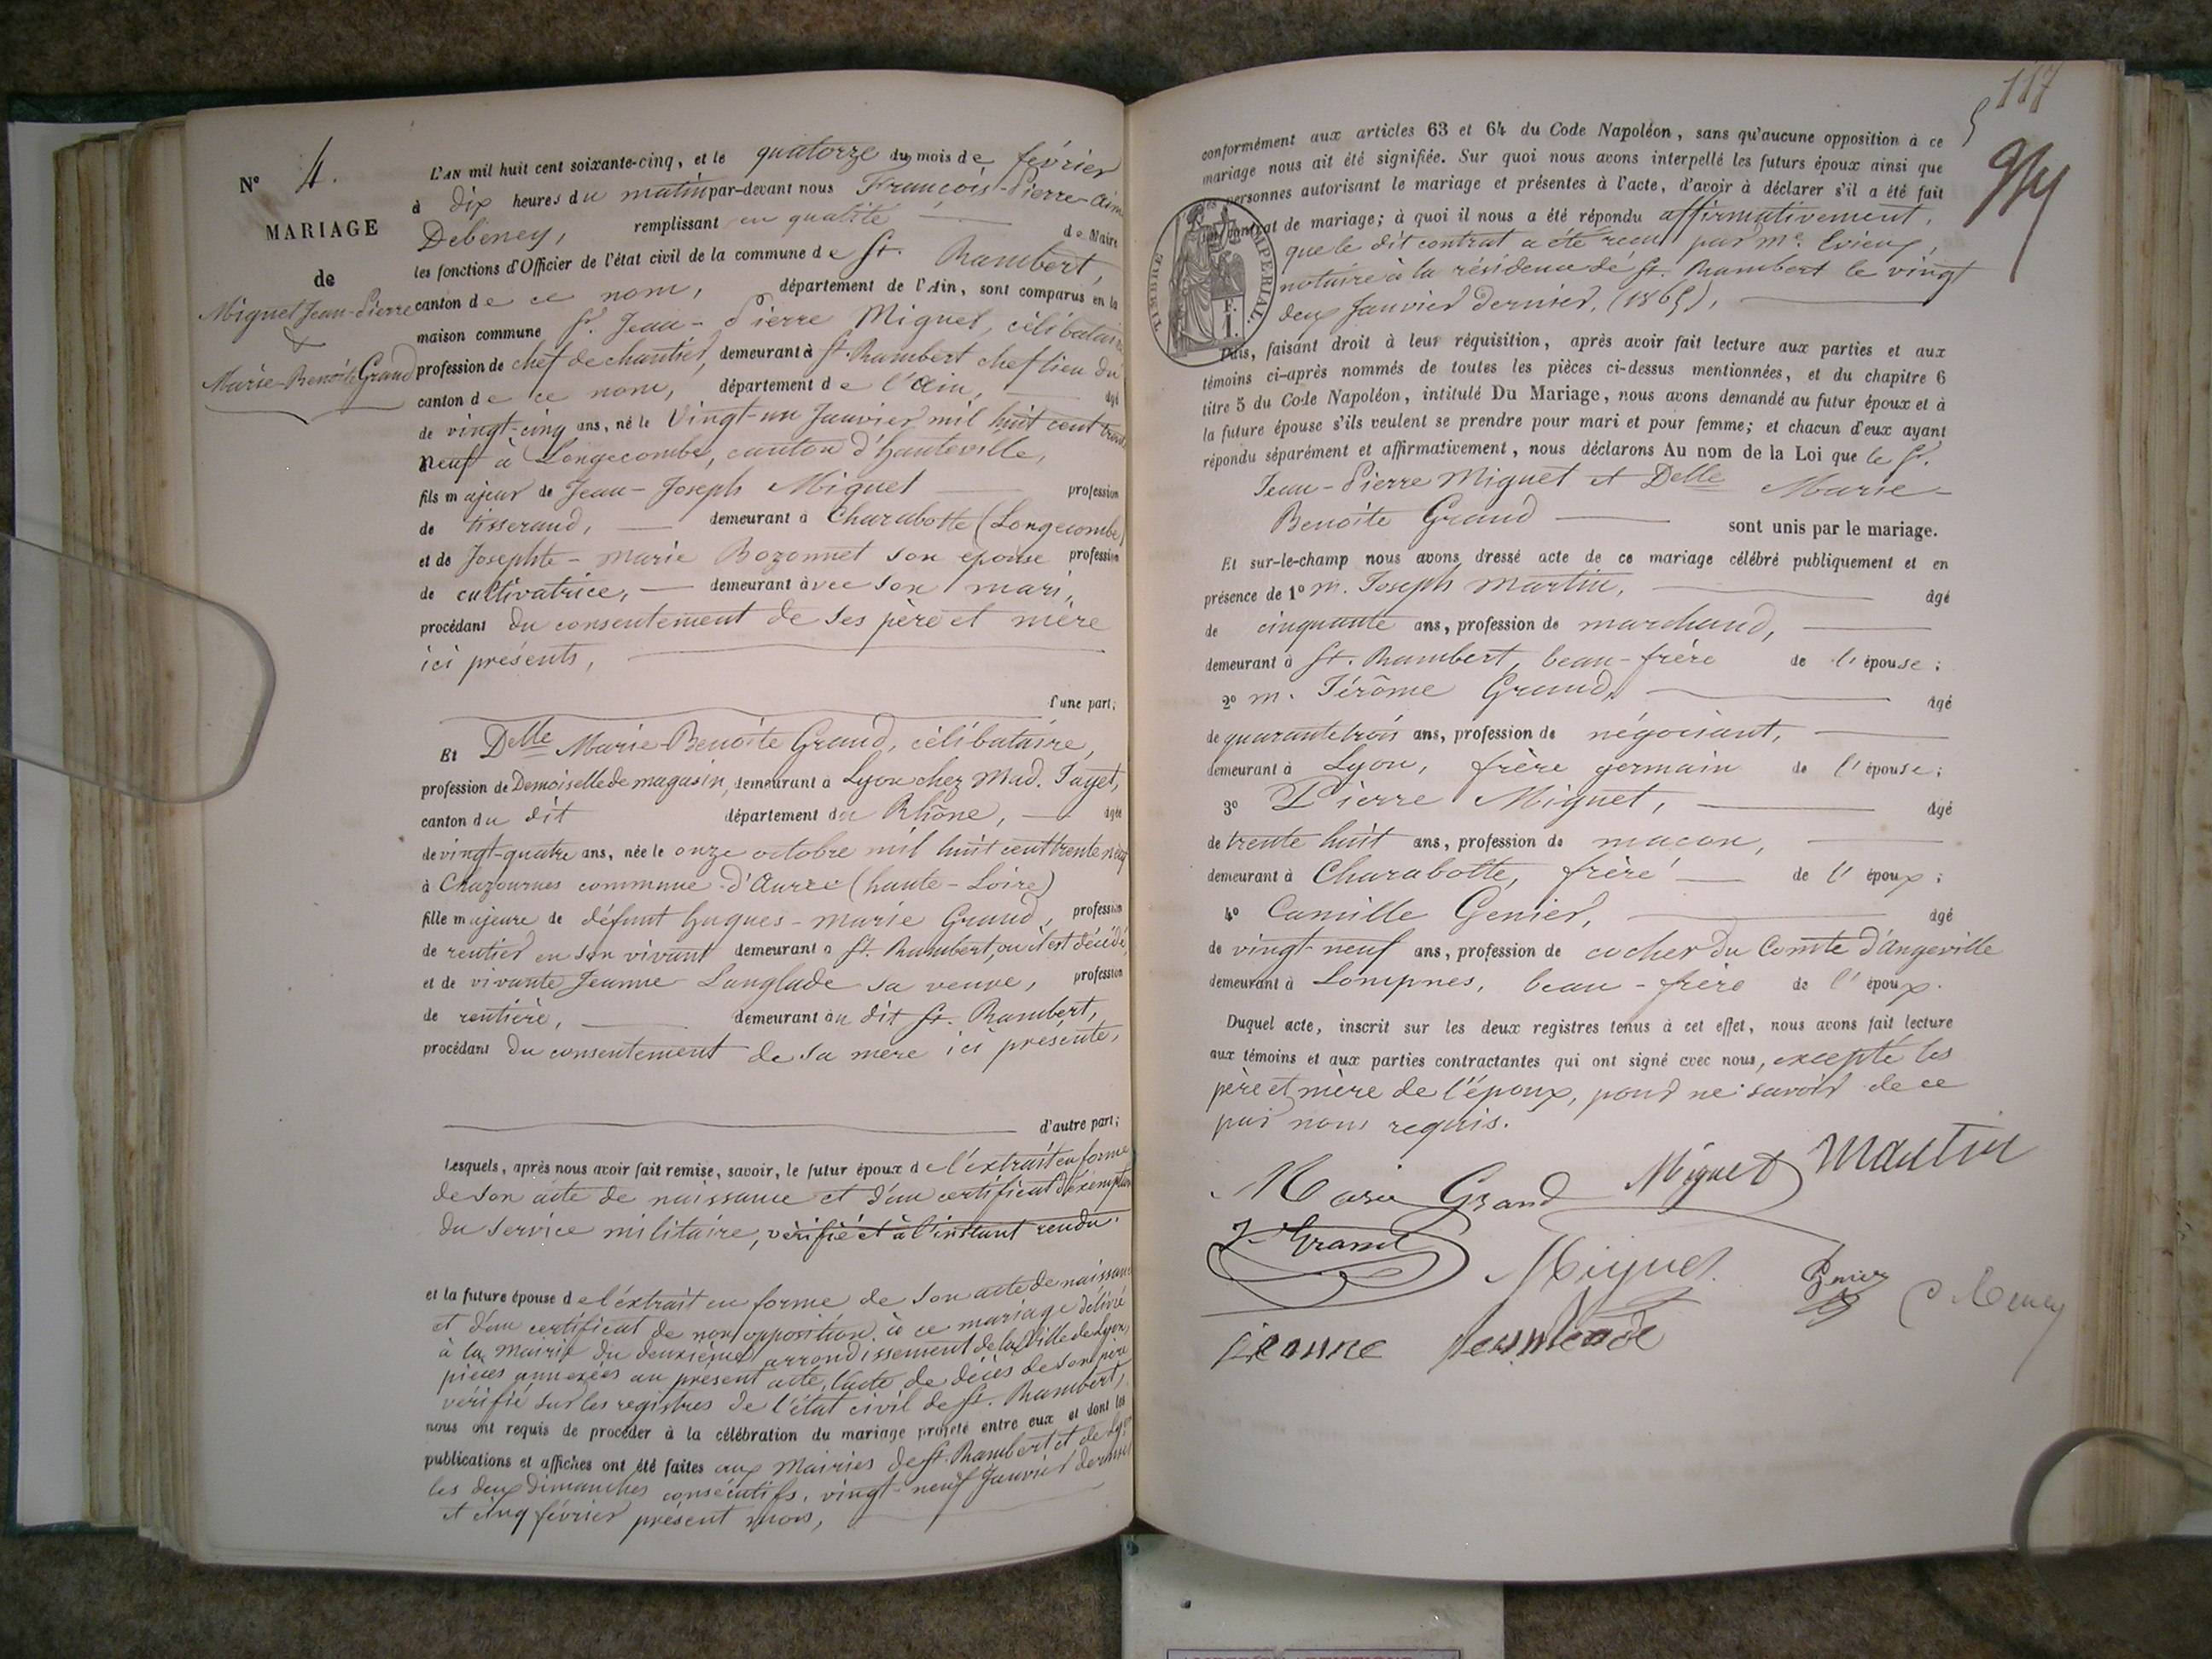 N° 4.
MARIAGE
de
Miguet Jean-Pierre
&
Marie-Benoîte Grand
L'AN mil huit cent soixante-cinq, et le quatorze du mois de février
à dix heures du matin par-devant nous François-Pierre-Aimé
Debeney, remplissant en qualité de Maire
les fonctions d'Officier de l'état civil de la commune de St. Rambert,
canton de ce nom, département de l'Ain, sont comparus en la
maison commune Sr. Jean-Pierre Miguet, célibataire
profession de chef de chantier, demeurant à St. Rambert chef lieu du
canton de ce nom, département de l'Ain, âgé
de vingt-cinq ans, né le Vingt-un Janvier mil huit cent trente
neuf à Longecombe, canton d'hauteville,
fils majeur de Jean-Joseph Miguet profession
de tisserand, demeurant à Charabotte (Longecombe)
et de Josephte-Marie Bozonnet son épouse profession
de cultivatrice, demeurant avec son mari,
procédant du consentement de ses père et mère
ici présents,
d'une part;
Et Delle Marie-Benoîte Grand, célibataire,
profession de Demoiselle de magasin, demeurant à Lyon chez Mad. Payet,
canton du dit département du Rhône, âgée
de vingt-quatre ans, née le onze octobre mil huit cent trente neuf
à Chazournes commune d'Aurec (haute-Loire)
fille majeure de défunt hugues-marie Grand, profession
de rentier en son vivant demeurant à St. Rambert, où il est décédé,
et de vivante Jeanne Langlade sa veuve, profession
de rentière, demeurant au dit St. Rambert,
procédant du consentement de sa mère ici présente,
d'autre part;
Lesquels, après nous avoir fait remise, savoir, le futur époux de l'extrait en forme
de son acte de naissance et d'un certificat d'exemption
du service militaire, vérifié et à l'instant rendu.
et la future épouse de l'extrait en forme de son acte de naissance
et d'un certificat de non opposition à ce mariage délivré
à la Mairie du deuxième arrondissement de la Ville de Lyon,
pièces annexées au présent acte, l'acte de décès de son père
vérifié sur les registres de l'état civil de St. Rambert,
nous ont requis de procéder à la célébration du mariage projeté entre eux et dont les
publications et affiches ont été faites aux Mairies de St. Rambert et de Lyon
les deux dimanches consécutifs, vingt-neuf Janvier dernier
et cinq février présent mois,
117
conformément aux articles 63 et 64 du Code Napoléon, sans qu'aucune opposition à ce
mariage nous ait été signifiée. Sur quoi nous avons interpellé les futurs époux ainsi que
les personnes autorisant le mariage et présentes à l'acte, d'avoir à déclarer s'il a été fait
un contrat de mariage; à quoi il nous a été répondu affirmativement,
que le dit contrat a été reçu par Me. Evieux,
notaire à la résidence de St. Rambert le vingt
deux Janvier dernier, (1865),
TIMBRE IMPERIAL
F.
1.
Puis, faisant droit à leur réquisition, après avoir fait lecture aux parties et aux
témoins ci-après nommés de toutes les pièces ci-dessus mentionnées, et du chapitre 6
titre 5 du Code Napoléon, intitulé Du Mariage, nous avons demandé au futur époux et à
la future épouse s'ils veulent se prendre pour mari et pour femme; et chacun d'eux ayant
répondu séparément et affirmativement, nous déclarons Au nom de la Loi que le Sr.
Jean-Pierre Miguet et Delle Marie-
Benoîte Grand sont unis par le mariage.
Et sur-le-champ nous avons dressé acte de ce mariage célébré publiquement et en
présence de 1° M. Joseph Martin, âgé
de cinquante ans, profession de marchand,
demeurant à St. Rambert, beau-frère de l'épouse;
2° M. Jérôme Grand, âgé
de quarante trois ans, profession de négociant,
demeurant à Lyon, frère germain de l'épouse;
3° Pierre Miguet, âgé
de trente huit ans, profession de maçon,
demeurant à Charabotte, frère de l'époux;
4° Camille Genier, âgé
de vingt-neuf ans, profession de cocher du Comte d'Angeville
demeurant à Lompnes, beau-frère de l'époux.
Duquel acte, inscrit sur les deux registres tenus à cet effet, nous avons fait lecture
aux témoins et aux parties contractantes qui ont signé avec nous, excepté les
père et mère de l'époux, pour ne savoir de ce
par nous requis.
Marie Grand Miguet Martin
J. Grand Miguet Genier Debeney
jeanne